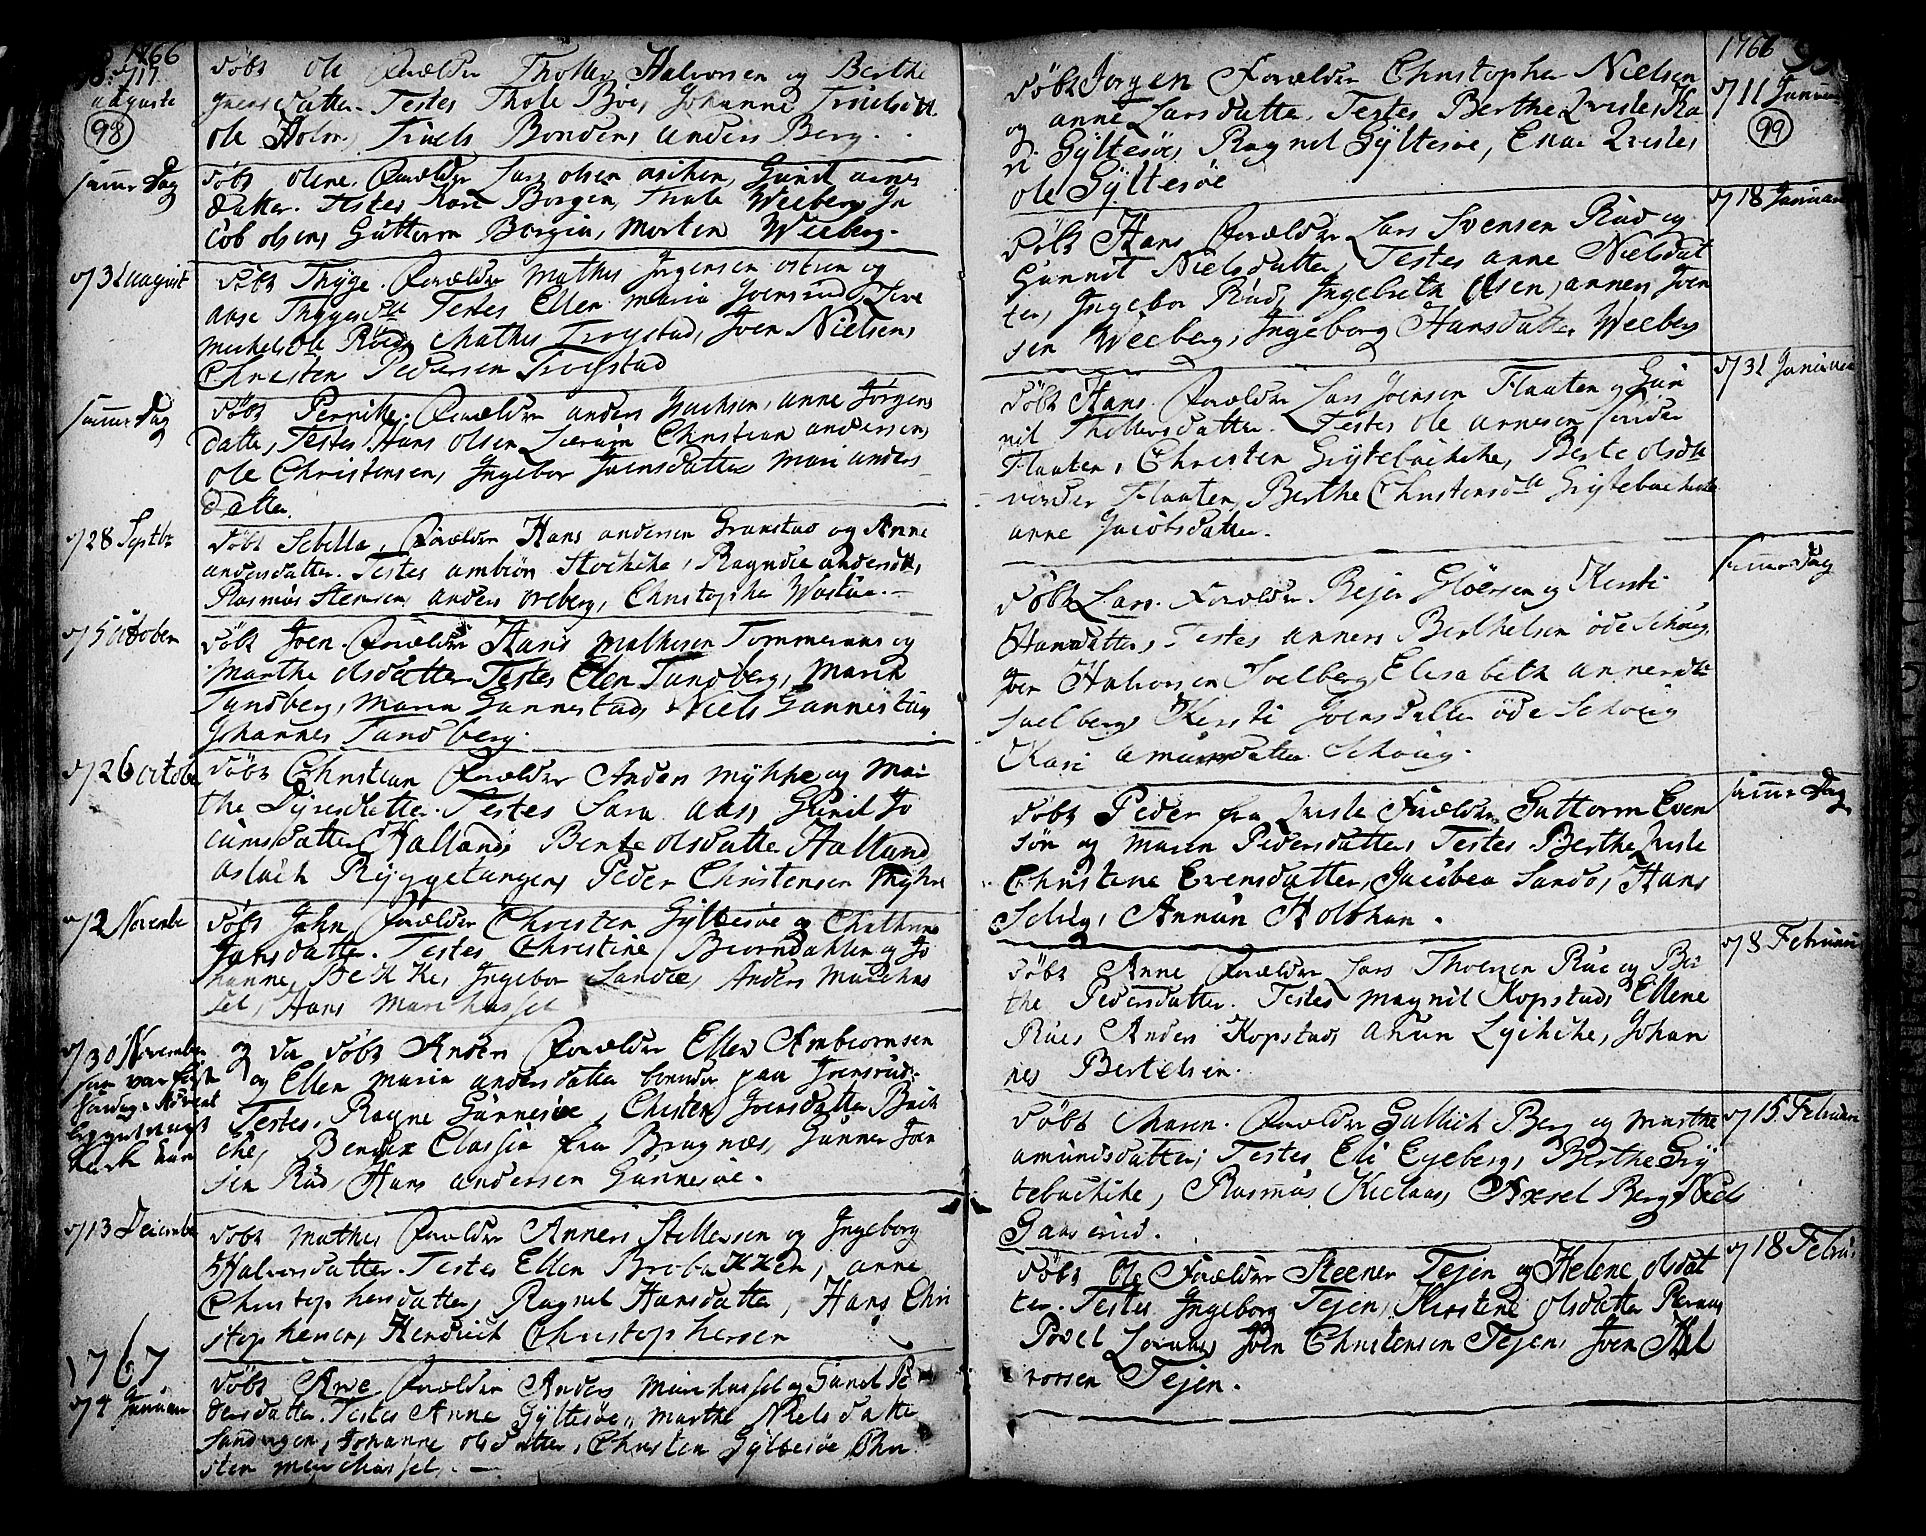 1766
d 17
auguste
98
døbt Ole Forældre Tholle Halvorsen og Berthe
datter. Testes Thole Boe, Johanne Truelsdtt
ole Holm, Truels Bonden, anders Berg.
samme Dag
døbt olene. Forældre Lars olsen asiken, Gunil arnes
datter. Testes Kari Borgen, Thale Weeberg, Ja
cob olsen, Guttorm Borgen, morten Weeberg.
d 31 august
døbt Thyge. Forældre Mathis Jørgensen ostsen og
aase Thygesdtt Testes Ellen maria Joensrud,
michelsdtr Rud, Mathis Trogstad, Joen Nielsen,
Christen Pedersen Trogstad
samme Dag
døbt Pernille. Forældre anders Isachsen, anne Jørgens
datter, Testes Hans olsen Christian andersen,
ole Christensen, Ingebor Joensdatter mari anders
datter.
d 28 Septbr
døbt Sebilla, Forældre Hans andersen Granstad og Anne
andersdatter. Testes ambiørn Stochche, Ragndie andersdtt,
Rasmus Steensen, anders oreberg, Christopher
d 5 october
døbt Joen. Forældre Hans Mathesen Tommeraas og
Marthe olsdatter Testes Elen Tundberg, Maria
Tundberg, Maria Gunnestad, Niels Gunnestad
Johannes Tundberg.
d 26 octobe
døbt Christian Forældre Anders Myhre og Mar
the Dyresdatter. Testes Sara aas, Gunild Jo
cumsdatter Hallands Bente olsdatter Halland
aslach Ryggetangen, Peder Christensen Myhre
d 2 Novembe
døbt John, Forældre Christen Gyltesøe og Chathrine
Jansdatter. Testes Christine Biorndahlen og Jo
hanne, Bekke, Ingebor Sandøe, Anders March
sel, Hans Marchussel
d 30 November
som var første
søndag i Advent
og da døbt Anders Forældre Elles Ambiornsen
og Ellen Maria andersdatter boende paa Joensrud.
Testes, Ragne Gunnesøe, Chisten Joensdatter Bach
che, Bendix Classen fra Bragnæs, Gunner Joen
sen Rud, Hans andersen Gunnesøe.
d 13 Decembe
døbt Mathis Forældre Anners Stellersen og Ingeborg
Halvorsdatter. Testes Ellen Brobakken, anne
Christophersdatter, Ragnel Hansdatter, Hans Chri
stophersen, Hendrich Christophersen
1767
d 4 Januar
døbt Forældre Anders Marchussel og Gunel Pe
dersdatter. Testes Anne Gyltesøe, Marthe Nielsdatte
Sandungen, Johanne olsdatter, Christen Gyltesøe Chri
sten Marchussel.
1766
d 11 Januar
99
døbt Jorgen Forældre Christopher Nielsen
og anne Larsdatter, Testes Berthe Qviste, Ka
ri Gyltesøe, Ragnil Gyltesøe, Enar Qviste,
ole Gyltesøe
d 18 Januari
døbt Hans Forældre Lars Svensen Rud og
Gunnil Nielsdatter, Testes anne Nielsdat
ter, Ingebor Rud, Ingebreth olsen, anners Joen
sen Weeberg, Ingeborg Hansdatter Weeberg
d 31 Januari
døbt Hans. Forældre Lars Joensen Flaaten og Gun
nil Thollersdatter. Testes ole arnesen
Flaaten, Christen Grytebachche, Berte olsdtr
Flaaten, Berthe Christensdtr Grytebachche
anne Jacobsdatter.
samme Dag
døbt Lars. Forældre Rejer Gloersen og Kersti
Hansdatter, Testes anners Berthelsen øde Schoug
Joen Halvorsen Soelberg Elisabeth annersdtr
Soelberg, Kersti Joensdatter øde Schoug
Kari amundsdatter Schoug.
samme Dag
døbt Peder fra Qviste Forældre Guttorm Even
søn og Maren Pedersdatter, Testes Berthe Qviste
Christene Evensdatter, Jacobea Sando, Hans
Selvig, Annun Holthan.
d 8 Februari
døbt Anne Forældre Lars Thoersen Rue og Ber
the Pedersdatter. Testes Magnil Kopstad, Ellene
Rues Anders Kopstad, anun Lychche, Johan
nes Bertelsen.
d 15 Februar
døbt Maren. Forældre Gullich Berg og Marthe
amundsdatter, Testes Eli Eyeberg, Berthe Gry
tebachche, Rasmus Kiclaas, Axsel Berg, Niels
Gaaserud.
d 18 Febru
døbt Ole Forældre Steener Tejen og Helene olsdat
ter. Testes Ingeborg Tejen, Kirstene olsdatter
Povel Joen Christensen Tejen, Joen Hal
vorsen Tejen.